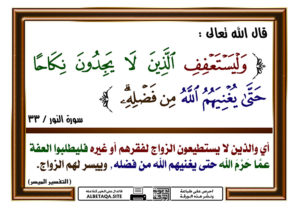 قال الله تعالى :
﴿ وَلْيَسْتَعْفِفِ ٱلَّذِينَ لَا يَجِدُونَ نِكَاحًا
حَتَّىٰ يُغْنِيَهُمُ ٱللَّهُ مِن فَضْلِهِۦ ﴾
سورة النور / ٣٣
أي والذين لا يستطيعون الزواج لفقرهم أو غيره فليطلبوا العفة
عمّا حَرَّمَ الله حتى يغنيهم الله من فضله, وييسر لهم الزواج.
( التفسير الميسر )
ALBETAQA.SITE